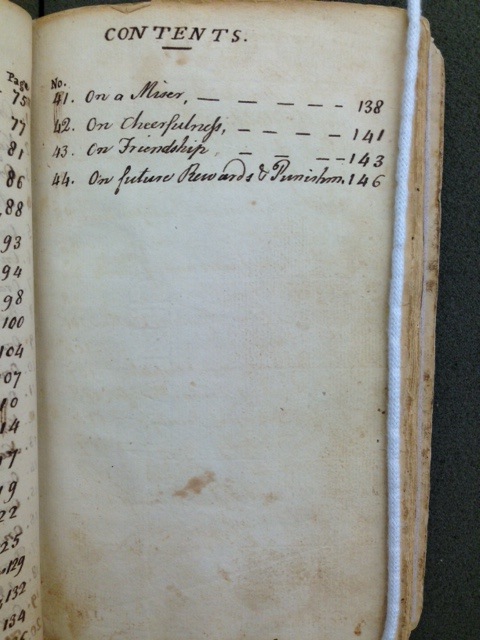 CONTENTS.
No.
41. On a Miser, — — — — — — 138
42. On Cheerfulneſs, — — — — — 141
43. On Friendship, — — — — 143
44. On future Rewards & Punishm. 146
Page
75
77
81
86
88
93
94
98
100
104
07
10
14
17
19
22
25
129
132
134